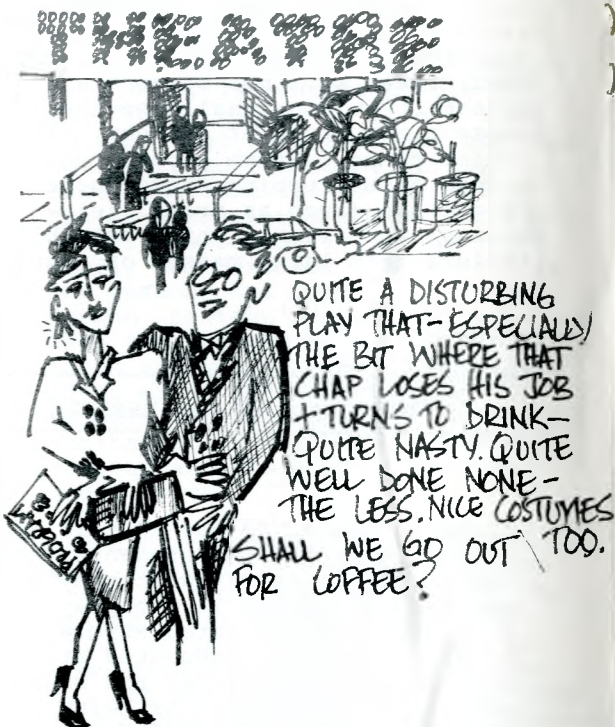 THEATRE
QUITE A DISTURBING
PLAY THAT - ESPECIALLY
THE BIT WHERE THAT
CHAP LOSES HIS JOB
+ TURNS TO DRINK -
QUITE NASTY. QUITE
WELL DONE NONE -
THE LESS. NICE COSTUMES
TOO.
SHALL WE GO OUT
FOR COFFEE?
PROGRAM